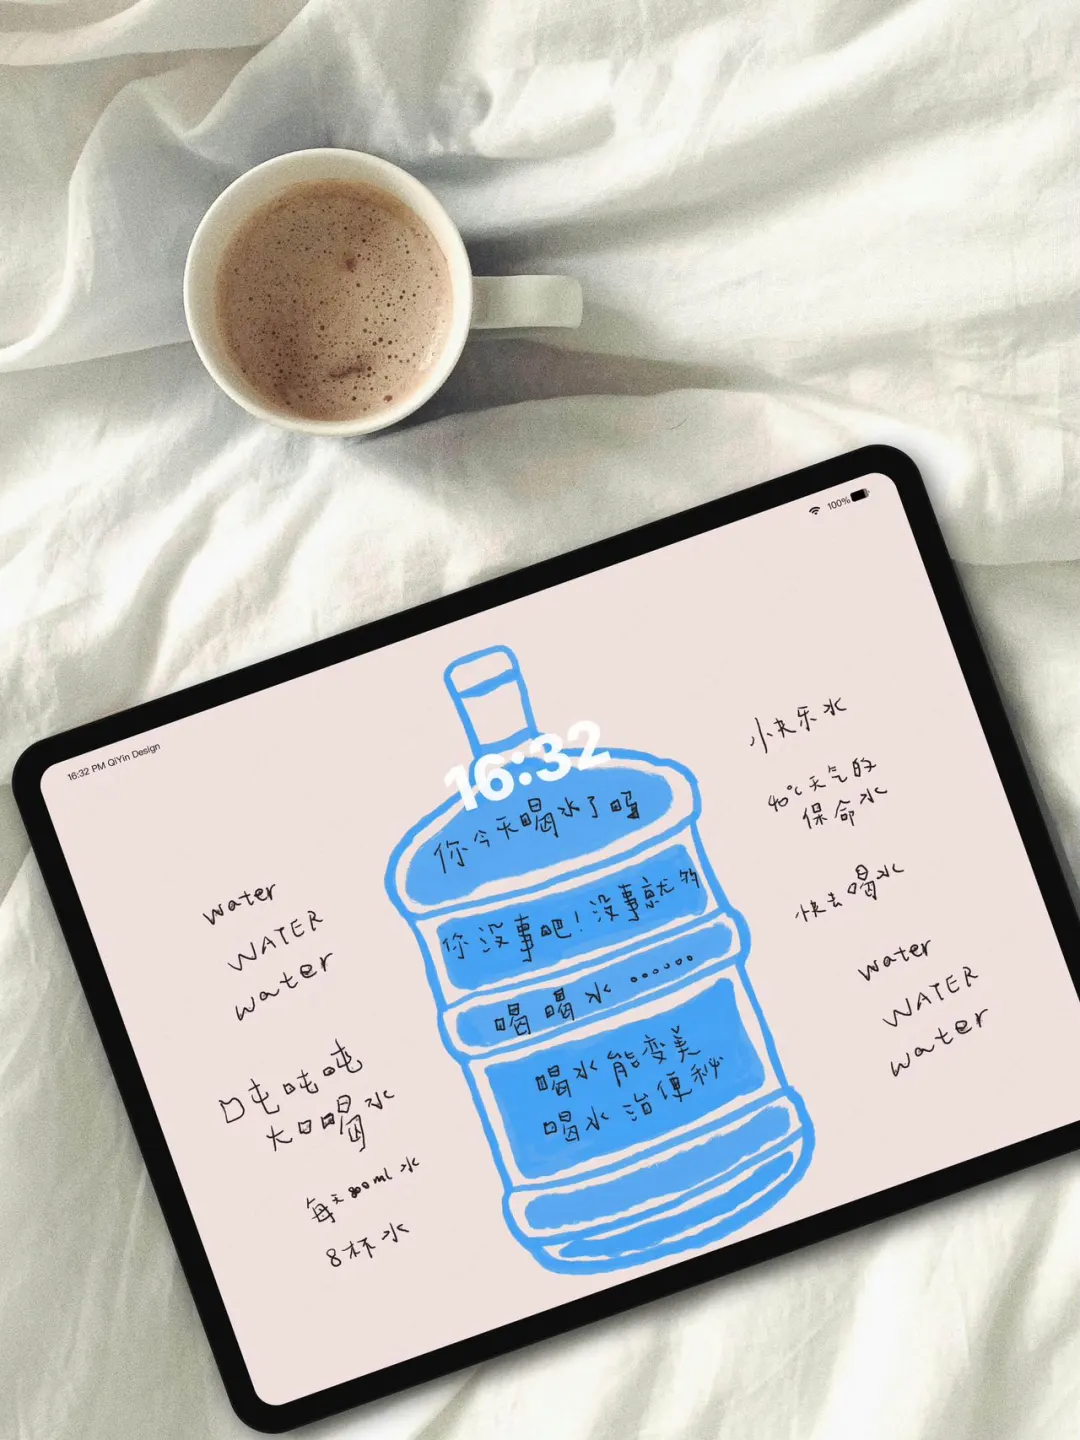 16:32 PM QiYin Design
100%
16:32
water
WATER
water
口吨吨吨
大口喝水
每天800ml水
8杯水
你今天喝水了吗
你没事吧！没事就多
喝喝水……
喝水能变美
喝水治便秘
小快乐水
40℃天气的
保命水
快去喝水
water
WATER
water